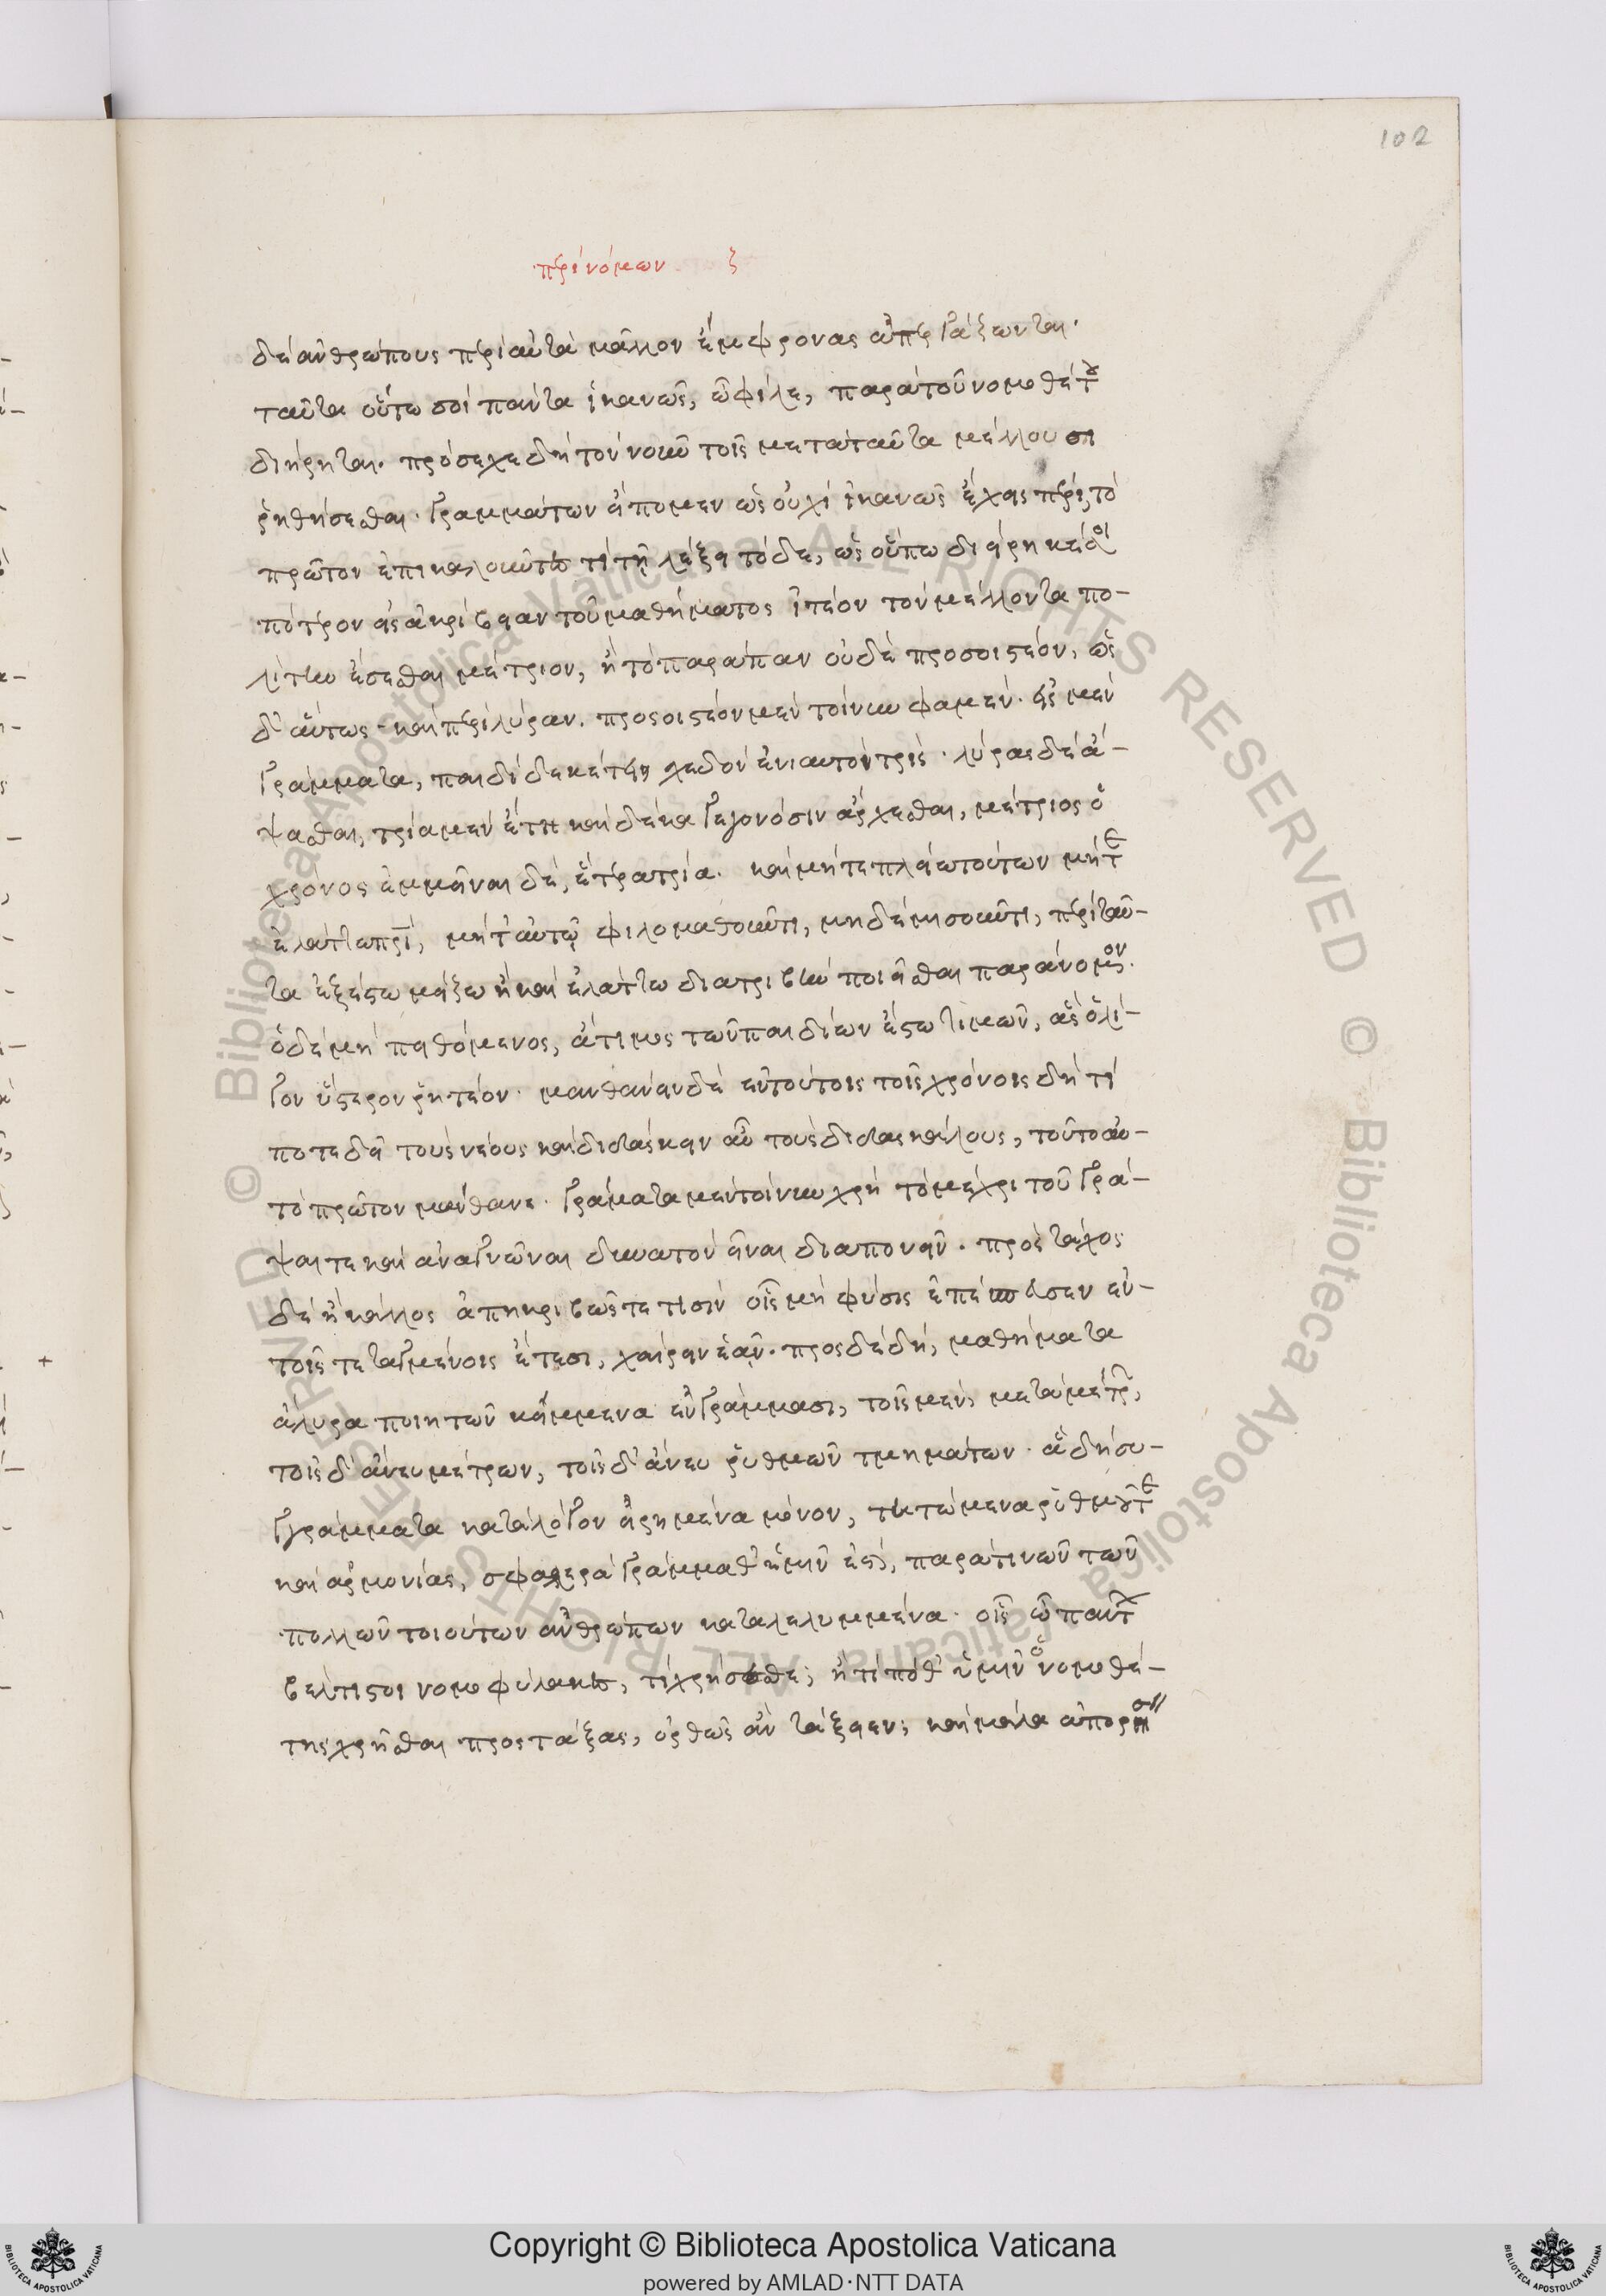 102
περὶ νόμων ζ
δὲ ἀνθρώπους περὶ αὐτὰ μᾶλλον ἔμφρονας ἀπεργάζωνται.
ταῦτα οὕτω σοὶ πάντα ἱκανῶς, ὦ φίλε, παρὰ τοῦ νομοθέτου
διήρηται. πρόσεχε δὴ τὸν νοῦν τοῖς μετὰ ταῦτα μέλλουσι
ῥηθήσεσθαι. γραμμάτων εἴπομεν ὡς οὐχὶ ἱκανῶς ἔχεις πέρι, τὸ
πρῶτον ἐπικαλοῦντες τί τῇ λέξει τόδε, ὡς οὔπω διείρηκέ σοι
πότερον εἰς ἀκρίβειαν τοῦ μαθήματος ἰτέον τὸν μέλλοντα πο-
λίτην ἔσεσθαι μέτριον, ἢ τὸ παράπαν οὐδὲ προσοιστέον, ὡς
δ' αὕτως καὶ περὶ λύραν. προσοιστέον μὲν τοίνυν φαμέν. εἰς μὲν
γράμματα, παιδὶ δεκέτει σχεδὸν ἐνιαυτοὶ τρεῖς. λύρας δὲ ἅ-
ψασθαι, τρία μὲν ἔτη καὶ δέκα γεγονόσιν ἄρχεσθαι, μέτριος ὁ
χρόνος ἐμμεῖναι δὲ, ἕτερα τρία. καὶ μήτε πλείω τούτων μήτε
ἐλάττω πρὶ, μήτ' αὐτῷ φιλομαθοῦντι, μηδὲ μισοῦντι, περὶ ταῦ-
τα ἐξέστω μείζω ἢ καὶ ἐλάττω διατριβὴν ποιεῖσθαι παράνομον.
ὁ δὲ μὴ πειθόμενος, ἄτιμος τῶν παιδείων ἔστω τιμῶν, ἃς ὀλί-
γον ὕστερον ῥητέον. μανθάνειν δὲ ἐν τούτοις τοῖς χρόνοις δὴ τί
ποτε δεῖ τοὺς νέους καὶ διδάσκειν αὖ τοὺς διδασκάλους, τοῦτο αὐ-
τὸ πρῶτον μάνθανε. γράμματα μὲν τοίνυν χρὴ τὸ μέχρι τοῦ γρά-
ψαι τε καὶ ἀναγνῶναι δυνατὸν εἶναι διαπονεῖν. πρὸς τάχος
δὲ ἢ κάλλος ἀπηκριβῶσθαι τισὶν οἷς μὴ φύσις ἐπέσπευσεν ἐν-
τοῖς τεταγμένοις ἔτεσι, χαίρειν ἐᾶν. πρὸς δὲ δὴ, μαθήματα
ἄλυρα ποιητῶν κείμενα ἐν γράμμασι, τοῖς μὲν, μετὰ μέτρων,
τοῖς δ' ἄνευ μέτρων, τοῖς δ' ἄνευ ῥυθμῶν τμημάτων. ἃ δὴ συ-
γγράμματα κατὰ λόγον εἰρημένα μόνον, τητώμενα ῥυθμοῦ τε
καὶ ἁρμονίας, σφαλερὰ γράμμαθ' ἡμῖν ἐστὶ, παρά τινων τῶν
πολλῶν τοιούτων ἀνθρώπων καταλελειμμένα. οἷς ὦ πάντων
βέλτιστοι νομοφύλακες, τί χρήσεσθε; ἢ τί ποθ' ὑμῖν ὁ νομοθέ-
της χρῆσθαι προστάξας, ὀρθῶς ἂν τάξειεν; καὶ μάλα ἀπορήσειν